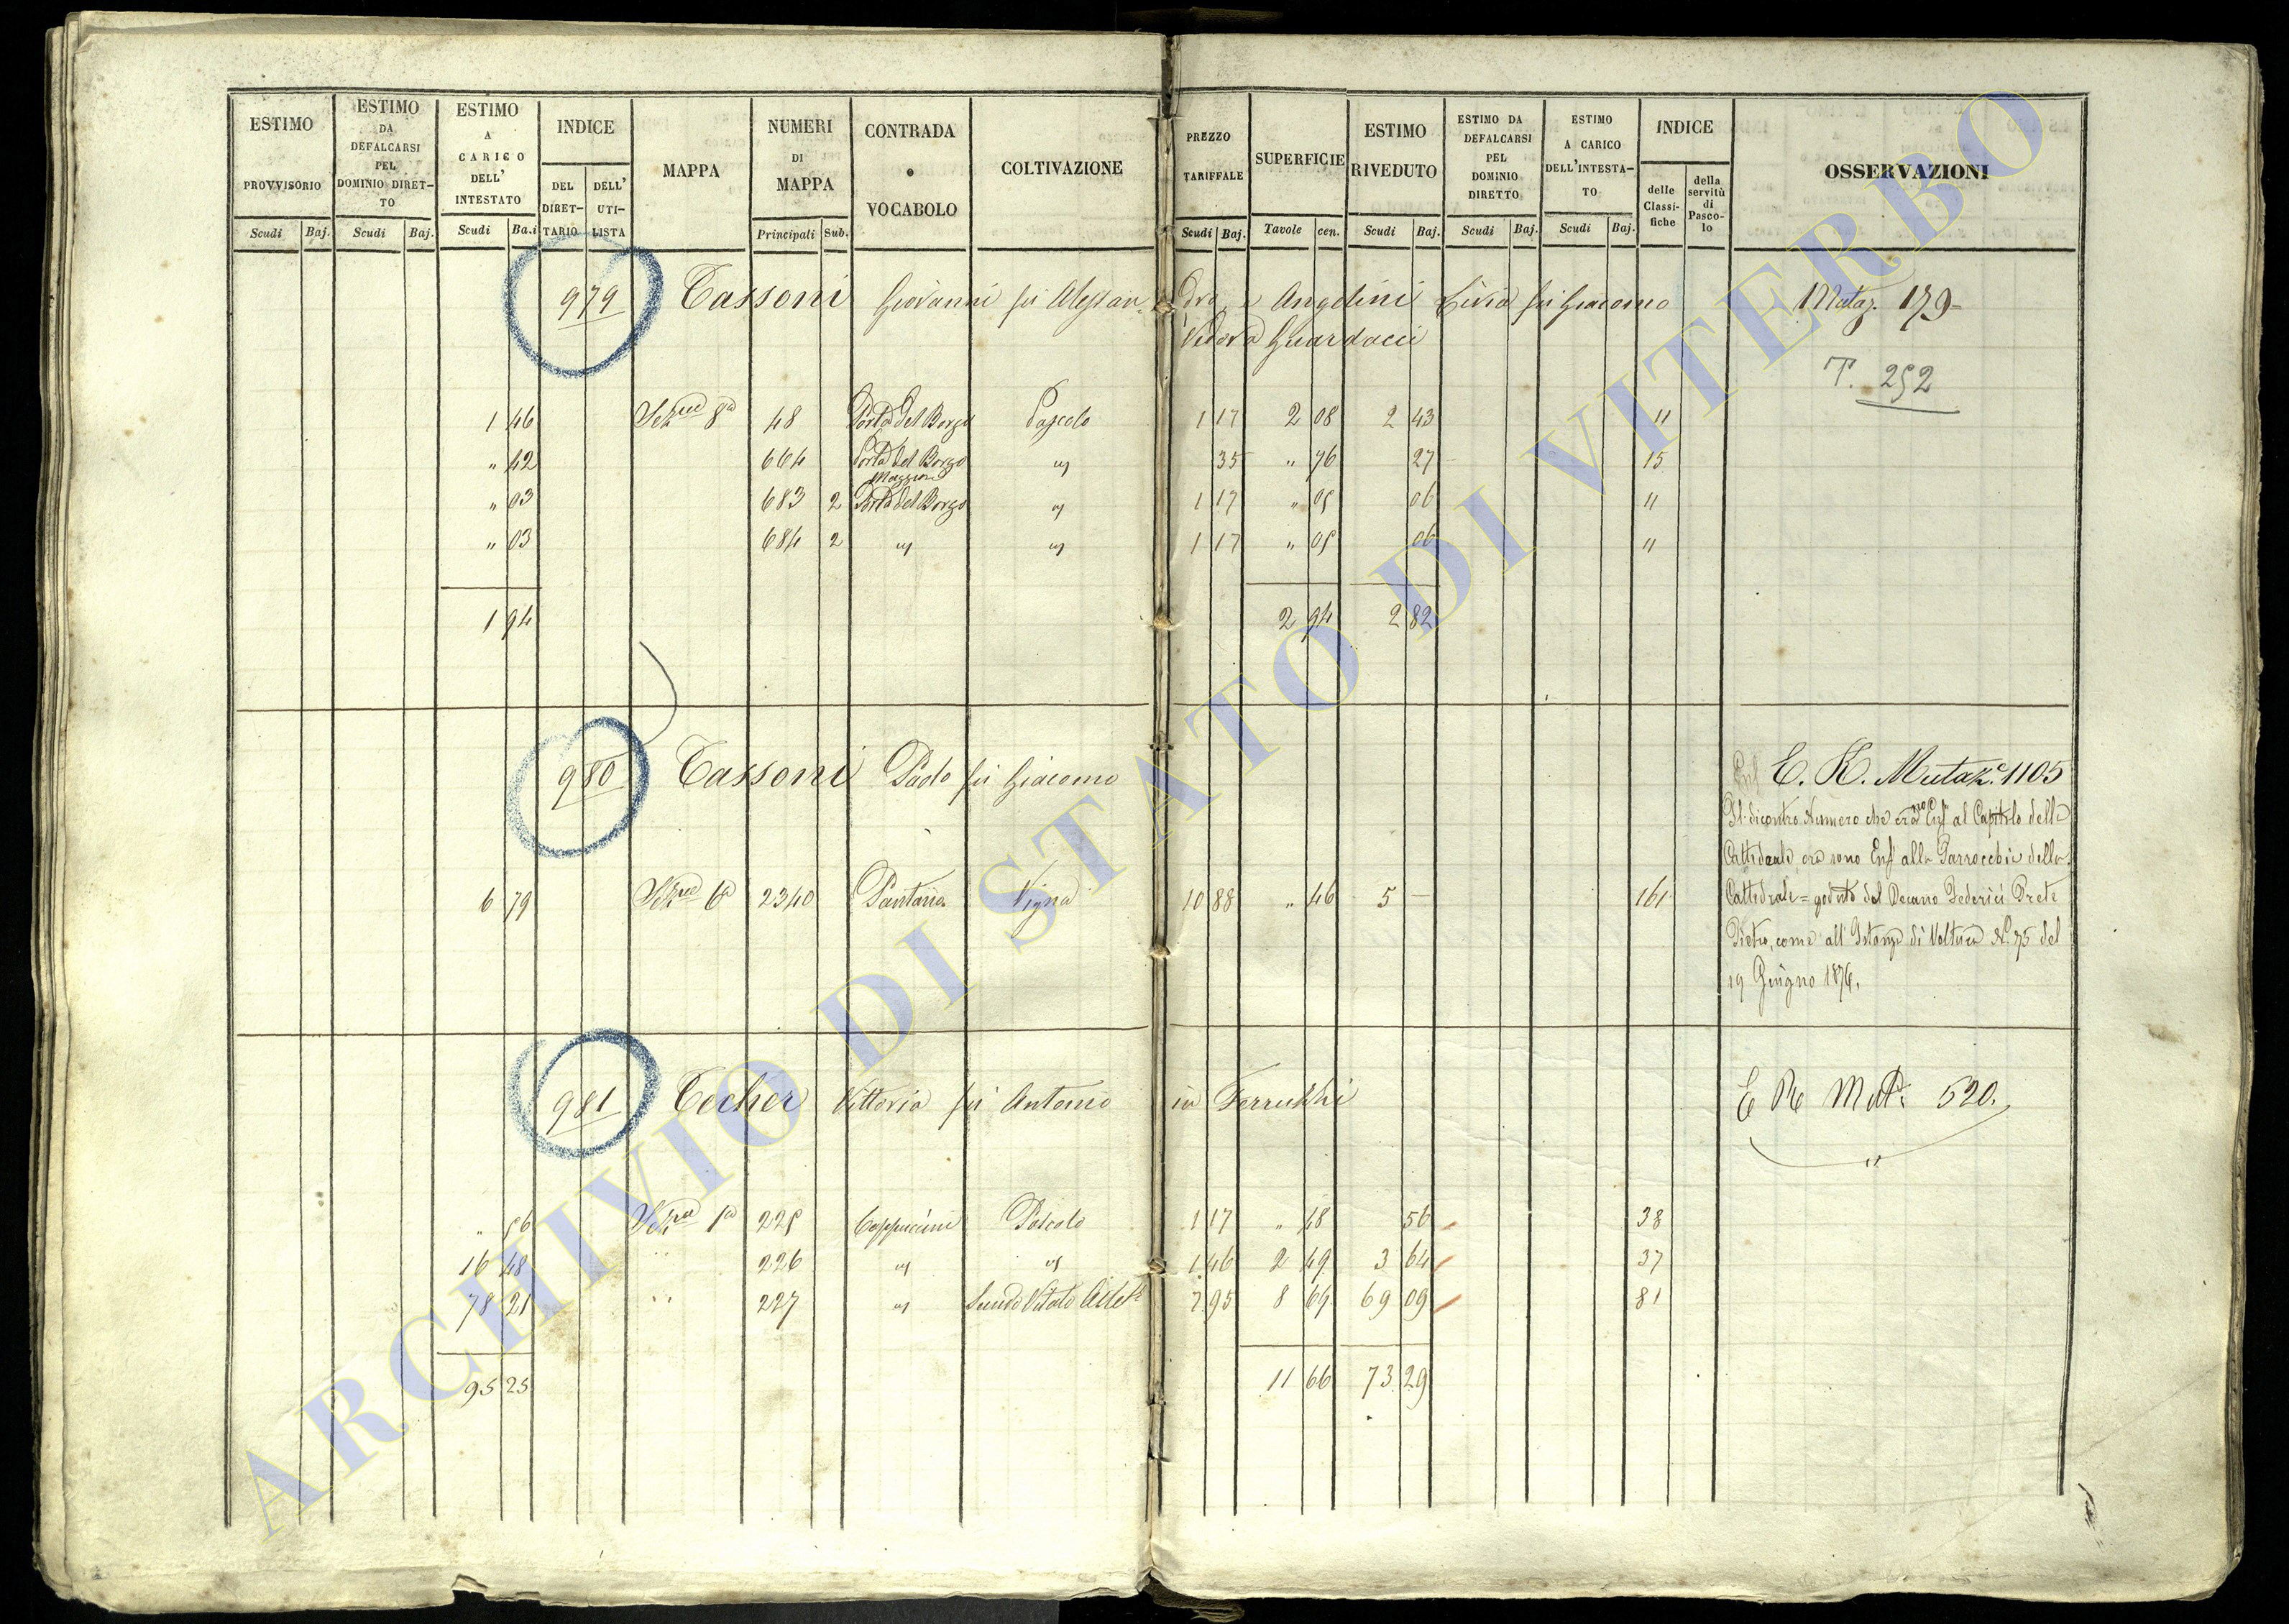 ESTIMO PROVVISORIO Scudi Baj.
ESTIMO DA DEFALCARSI PEL DOMINIO DIRET- TO Scudi Baj.
ESTIMO A CARICO DELL' INTESTATO Scudi Ba.i
INDICE DEL DIRET- TARIO DELL' UTI- LISTA
MAPPA
NUMERI DI MAPPA Principali Sub.
CONTRADA o VOCABOLO
COLTIVAZIONE
PREZZO TARIFFALE Scudi Baj.
SUPERFICIE Tavole cen.
ESTIMO RIVEDUTO Scudi Baj.
ESTIMO DA DEFALCARSI PEL DOMINIO DIRETTO Scudi Baj.
ESTIMO A CARICO DELL'INTESTA- TO Scudi Baj.
INDICE delle Classi- fiche della servitù di Pasco- lo
OSSERVAZIONI
979 Tassoni Giovanni fu Alessan- dro, e Angelini Livia fu Giacomo Mutaz. 179
Vedova Guardacci
T. 252
1 46 Sez 8a 48 Porta del Borgo Pascolo 1 17 2 08 2 43 11
" 42 664 Porta del Borgo " 35 " 76 27 15
Maggiore
" 03 683 2 Porta del Borgo " 1 17 " 05 06 11
" 03 684 2 " " 1 17 " 05 06 11
1 94 2 94 2 82
980 Tassoni Paolo fu Giacomo E. R. Mutaz. 1105
Il dicontro Numero che era Enf al Capitolo della
Cattedrale, ora sono Enf alla Parrocchia della
6 79 Sez 6a 2340 Pantano Vigna 10 88 " 46 5 – 161 Cattedrale = goduto dal Decano Federici Prete
Pietro, come all' Istanza di Voltura N. 75 del
19 Giugno 1876.
981 Techer Vittoria fu Antonio in Ferrucchi E R Mut. 520.
" 56 Sez 1a 225 Cappuccini Pascolo 1 17 " 48 56 38
16 48 " 226 " " 1 46 2 49 3 64 37
78 21 " 227 " 7 95 8 69 69 09 81
95 25 11 66 73 29
ARCHIVIO DI STATO DI VITERBO